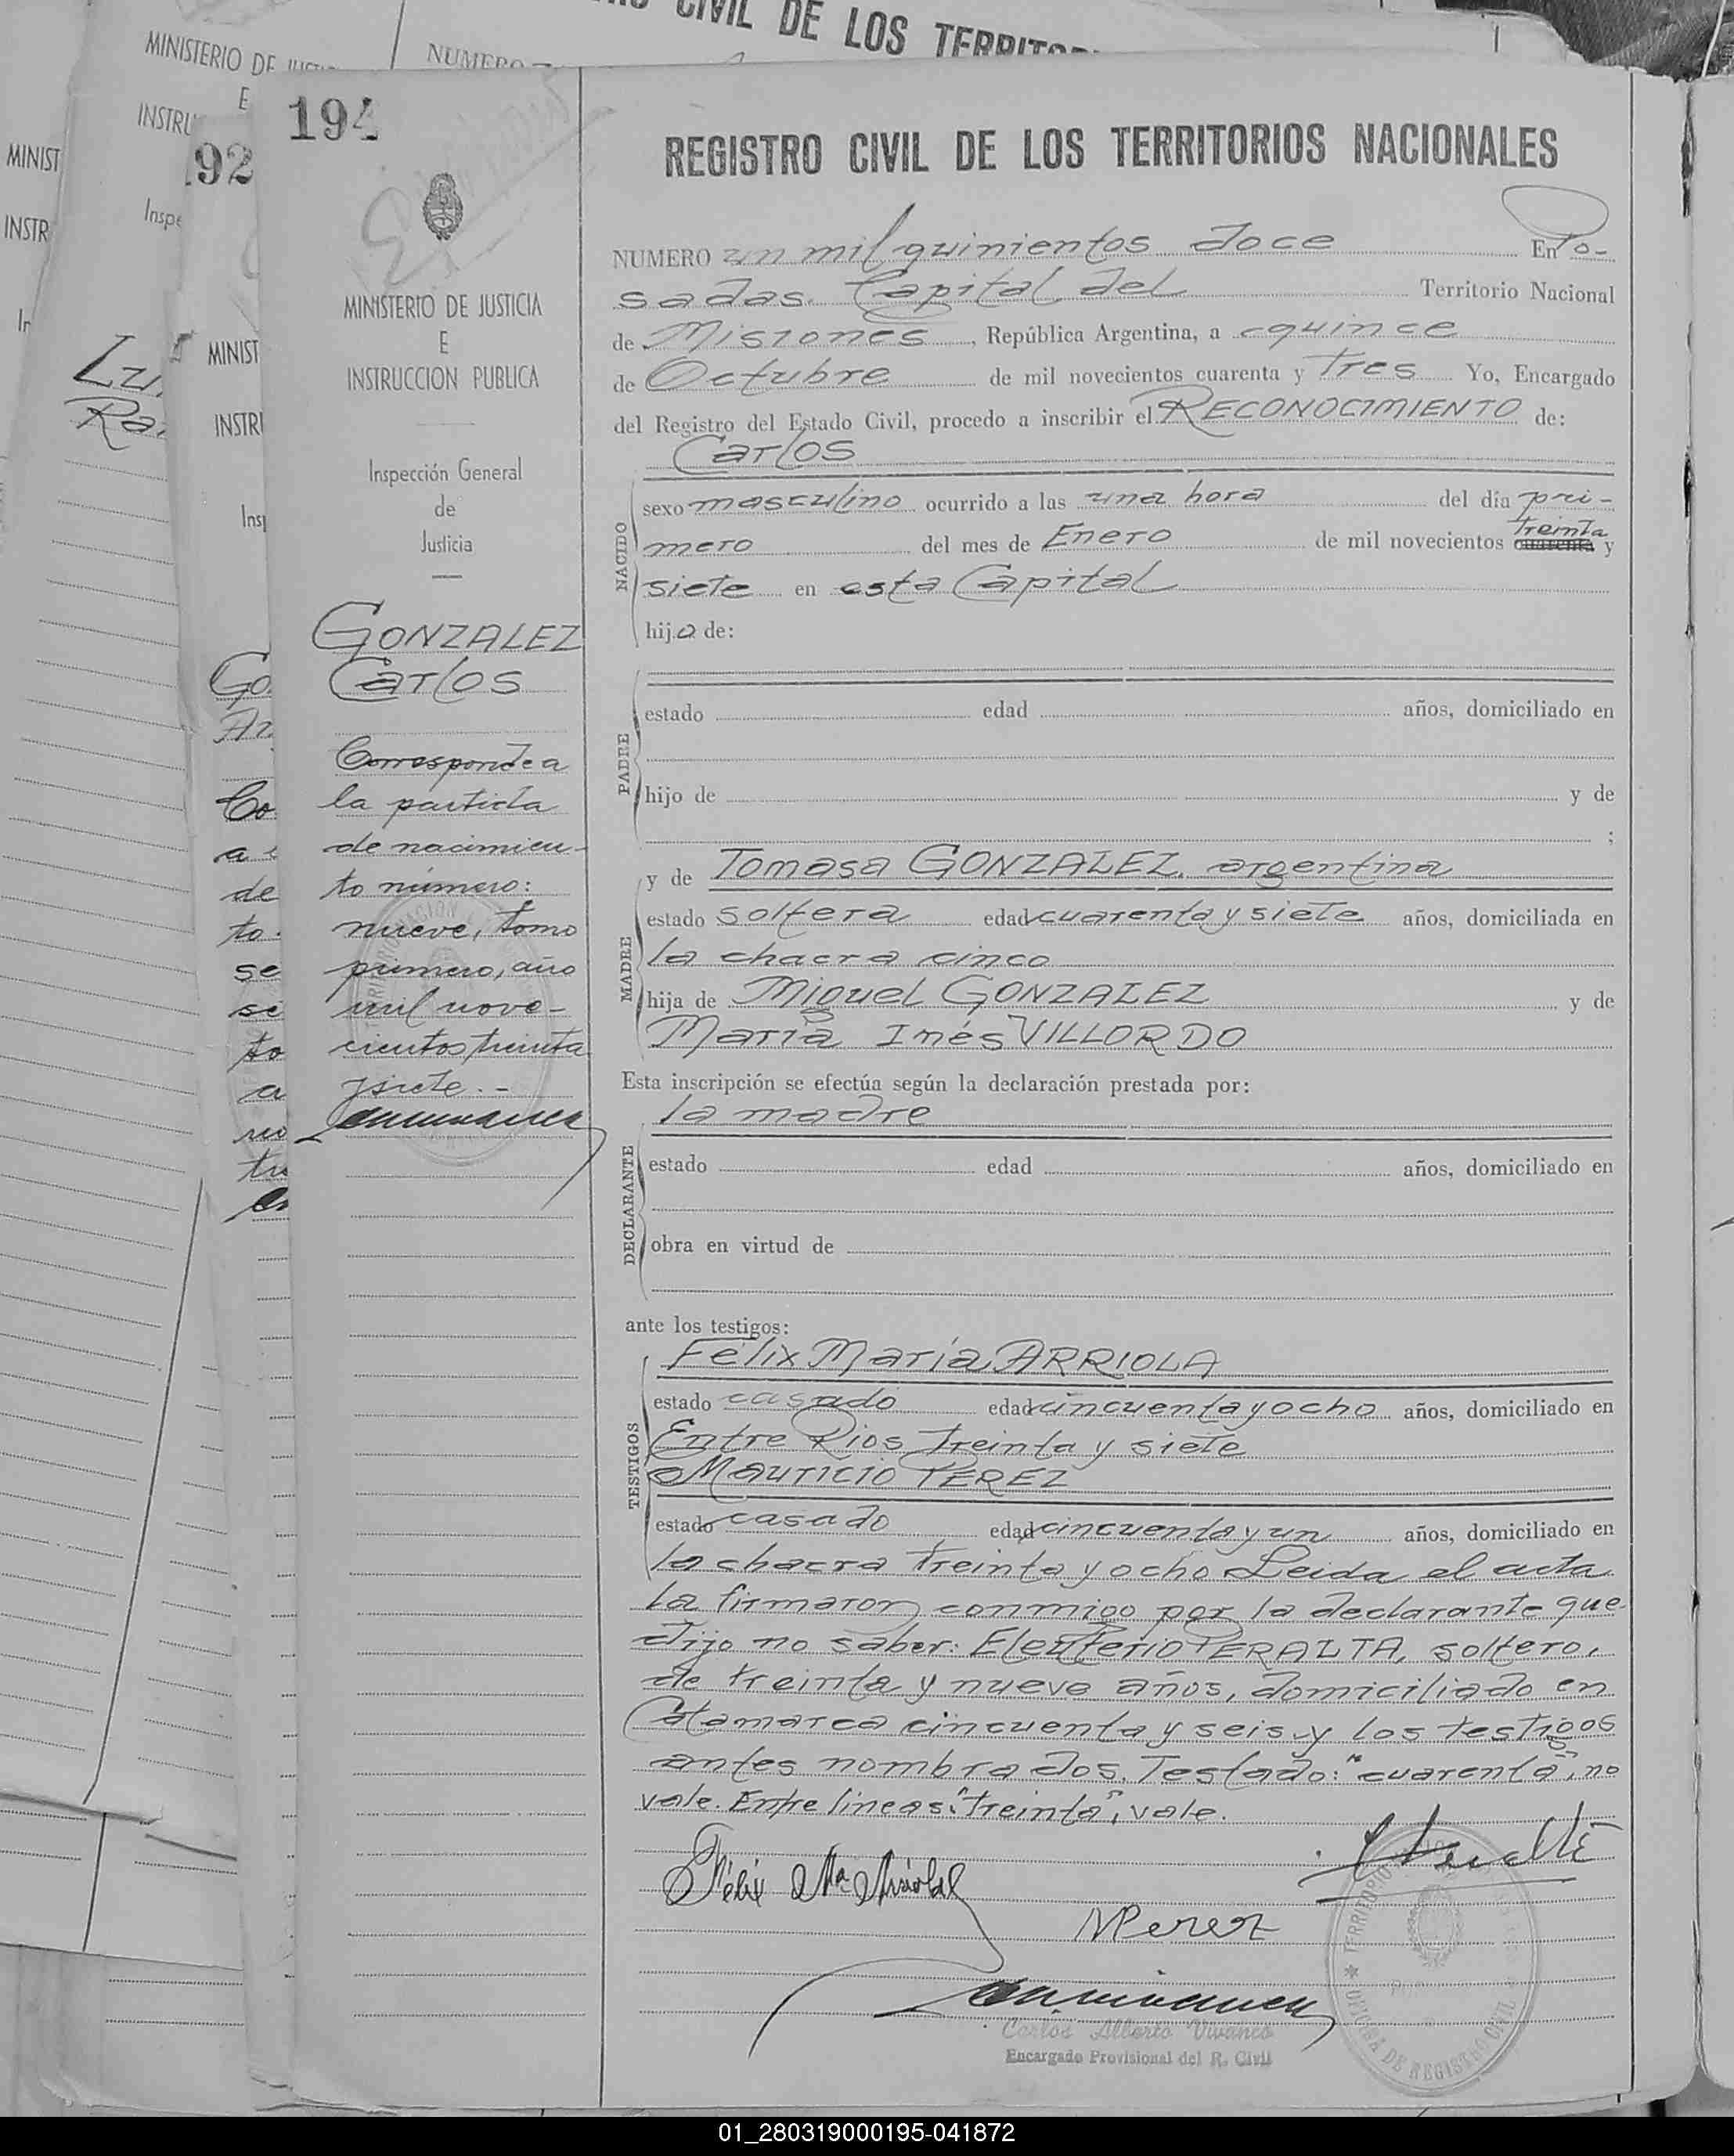 CIVIL DE LOS
MINISTERIO DE
NUMERO
E
INSTRU
MINIST
92
INSTR
Inspe
MINIST
INSTRU
Insp
194
MINISTERIO DE JUSTICIA
E
INSTRUCCION PUBLICA
Inspección General
de
Justicia
GONZALEZ
Carlos
Corresponde a
la partida
de nacimien-
to número:
nueve, tomo
primero, año
mil nove-
cientos treinta
y siete.-
REGISTRO CIVIL DE LOS TERRITORIOS NACIONALES
NUMERO un mil quinientos doce En Po-
sadas. Capital del Territorio Nacional
de Misiones, República Argentina, a quince
de Octubre de mil novecientos cuarenta y tres Yo, Encargado
del Registro del Estado Civil, procedo a inscribir el RECONOCIMIENTO de:
Carlos
NACIDO
sexo masculino ocurrido a las una hora del día pri-
treinta
mero del mes de Enero de mil novecientos cuarenta y
siete en esta Capital
hijo de:
PADRE
estado edad años, domiciliado en
hijo de y de
;
MADRE
y de Tomasa GONZALEZ. argentina
estado soltera edad cuarenta y siete años, domiciliada en
la chacra cinco
hija de Miguel GONZALEZ y de
María Inés VILLORDO
Esta inscripción se efectúa según la declaración prestada por:
la madre
DECLARANTE
estado edad años, domiciliado en
obra en virtud de
ante los testigos:
TESTIGOS
Félix María ARRIOLA
estado casado edad cincuenta y ocho años, domiciliado en
Entre Rios treinta y siete
Mauricio PEREZ
estado casado edad cincuenta y un años, domiciliado en
la chacra treinta y ocho Leida el acta
La firmaron conmigo por la declarante que
dijo no saber: Eleuterio PERALTA, soltero,
de treinta y nueve años, domiciliado en
Catamarca cincuenta y seis y los testigos
antes nombrados. Testado: "cuarenta", no
vale. Entre lineas: "treinta", vale.
Félix Ma Arriola
M Perez
Carlos Alberto Vivanco
Encargado Provisional del R. Civil
TERRITORIO
OFICINA DE REGISTRO CIVIL
01_280319000195-041872